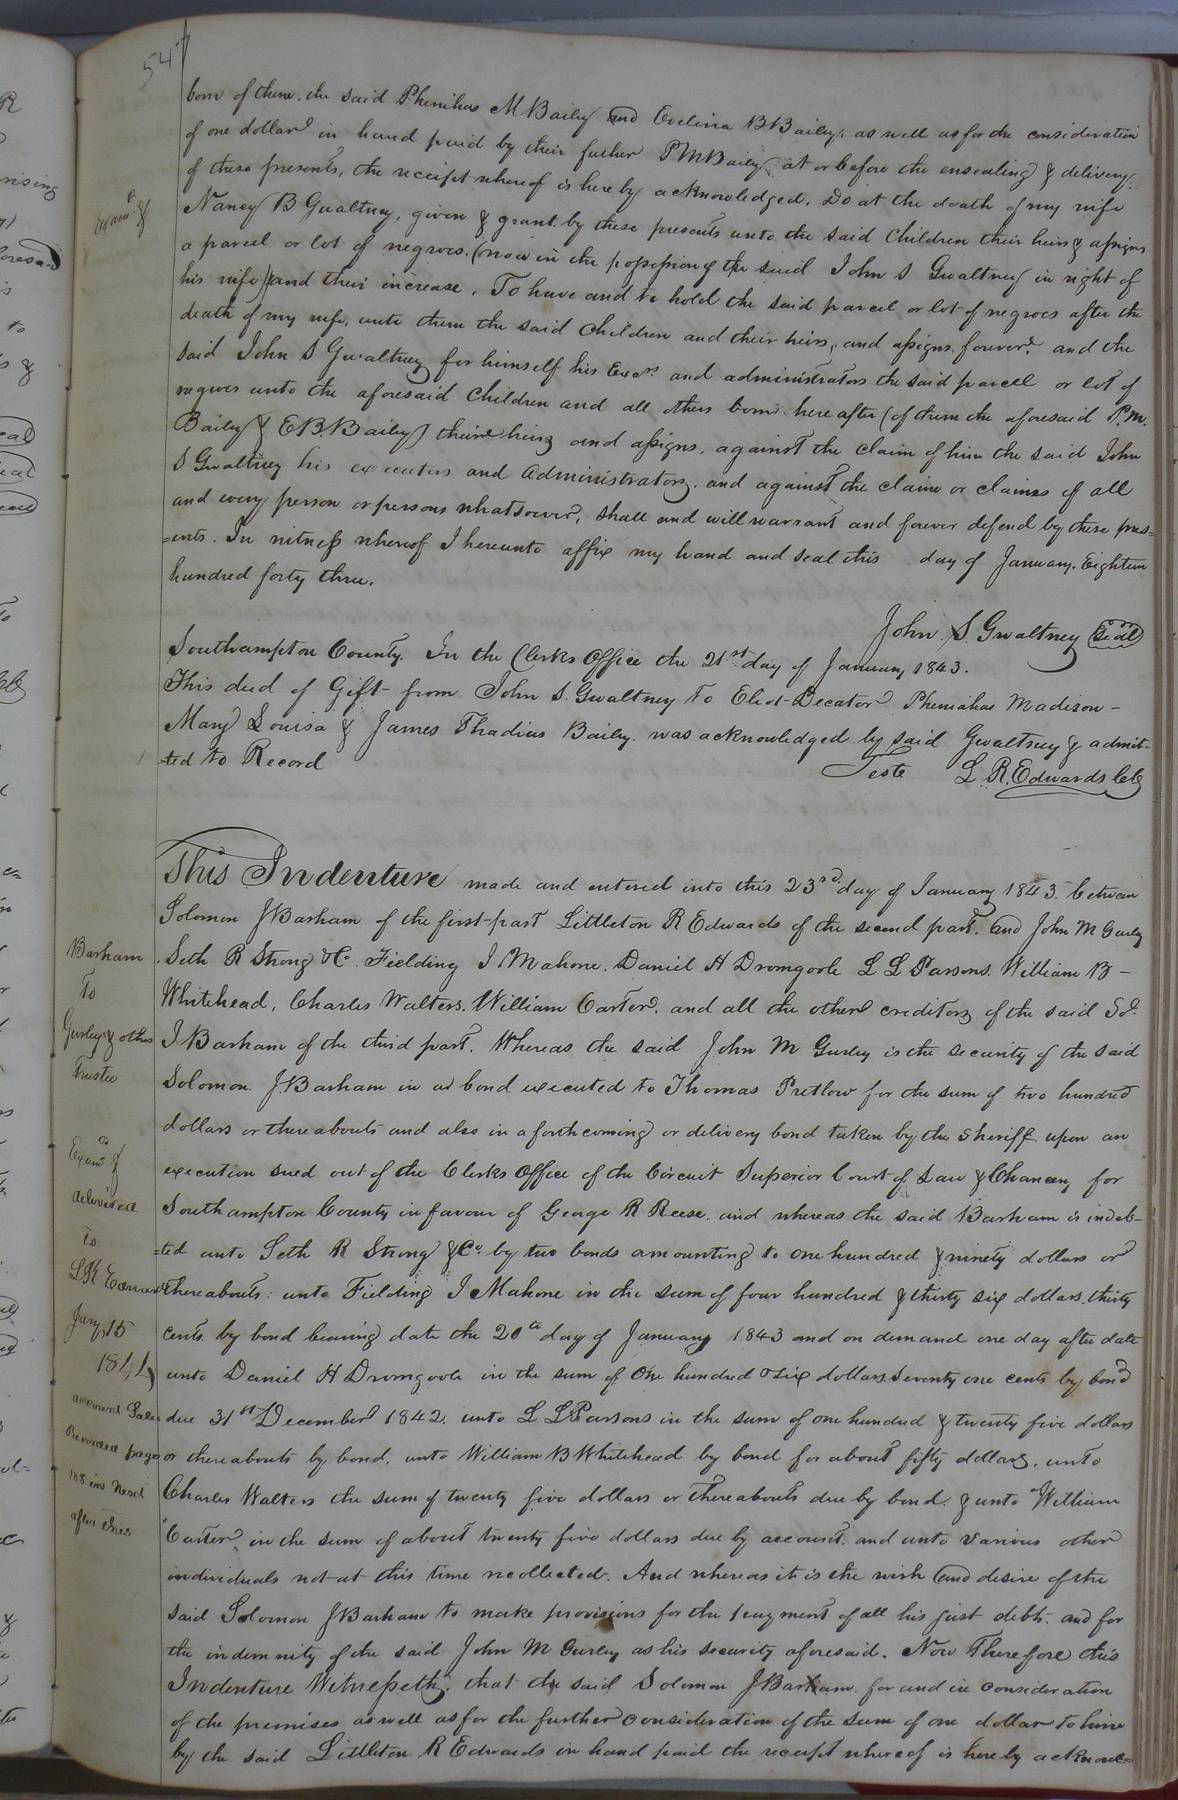 54
born of them. the said Phenihas M Baily and Evelina B Baily, as well as for the consideration
of one dollar in hand paid by their father P M Baily at or before the ensealing & delivery
of these presents, the receipt whereof is hereby acknowledged. Do at the death of my wife
Examd &
Nancy B Gwaltney, given & grant by these presents unto the said Children their heirs & assigns
a parcel or lot of negroes. (now in the possession of the said John S Gwaltney in right of
his wife) and their increase. To have and to hold the said parcel or lot of negroes after the
death of my wife, unto them the said Children and their heirs, and assigns forever. and the
said John S Gwaltney for himself his Exors and administrators the said parcel or lot of
negroes unto the aforesaid Children and all others born hereafter (of them the aforesaid P. M.
Baily & E B. Baily) their heirs and assigns, against the claim of him the said John
S Gwaltney his executors and Administrators, and against the claim or claims of all
and every person or persons whatsoever, shall and will warrant and forever defend by these pres=
=ents. In witness whereof I hereunto affix my hand and seal this day of January. Eighteen
hundred forty three.
John. S. Gwaltney Seal
Southampton County. In the Clerks Office the 21st day of January 1843.
This deed of Gift from John S. Gwaltney to Eliot Decator Pheniahas Madison -
Mary Louisa & James Thadius Baily. was acknowledged by said Gwaltney & admit-
=ted to Record
Teste L R. Edwards Clk
This Indenture made and entered into this 23rd day of January 1843. between
Solomon J Barham of the first part Littleton R Edwards of the second part. and John M Gurley
Barham
To
Gurley & others
Trustee
Seth R Strong & Co. Fielding J Mahone. Daniel H Dromgoole L L Parsons. William B -
Whitehead, Charles Walters. William Carter. and all the other creditors of the said Sol.
J Barham of the third part. Whereas the said John M Gurley is the security of the said
Solomon J Barham in a bond executed to Thomas Pretlow for the sum of two hundred
dollars or thereabouts and also in a forthcoming or delivery bond taken by the Sheriff upon an
Examd &
delivered
To
L R Edwards
Jany 15
1844
execution sued out of the Clerks Office of the Circuit Superior Court of Law & Chancery for
Southampton County in favour of George R Reese. and whereas the said Barham is indeb-
=ted unto Seth R Strong & Co. by two bonds amounting to one hundred & ninety dollars or
thereabouts: unto Fielding J Mahone in the sum of four hundred & thirty six dollars. thirty
cents by bond bearing date the 20th day of January 1843 and on demand one day after date
unto Daniel H Dromgoole in the sum of One hundred & six dollars. Seventy one cents by bond
account Sales
Recorded page
188 in Next
after this
due 31st December 1842. unto L L Parsons in the sum of one hundred & twenty five dollars
or thereabouts by bond. unto William B Whitehead by bond for about fifty dollars. unto
Charles Walters the sum of twenty five dollars or thereabouts due by bond. & unto William
Carter. in the sum of about twenty five dollars due by account. and unto various other
individuals not at this time recollected. And whereas it is the wish and desire of the
said Solomon J Barham to make provisions for the payment of all his just debts. and for
the indemnity of the said John M Gurley as his security aforesaid. Now Therefore this
Indenture Witnesseth, that the said Solomon J Barham for and in consideration
of the premises as well as for the further consideration of the sum of one dollar to him
by the said Littleton R Edwards in hand paid the receipt whereof is hereby acknowl=